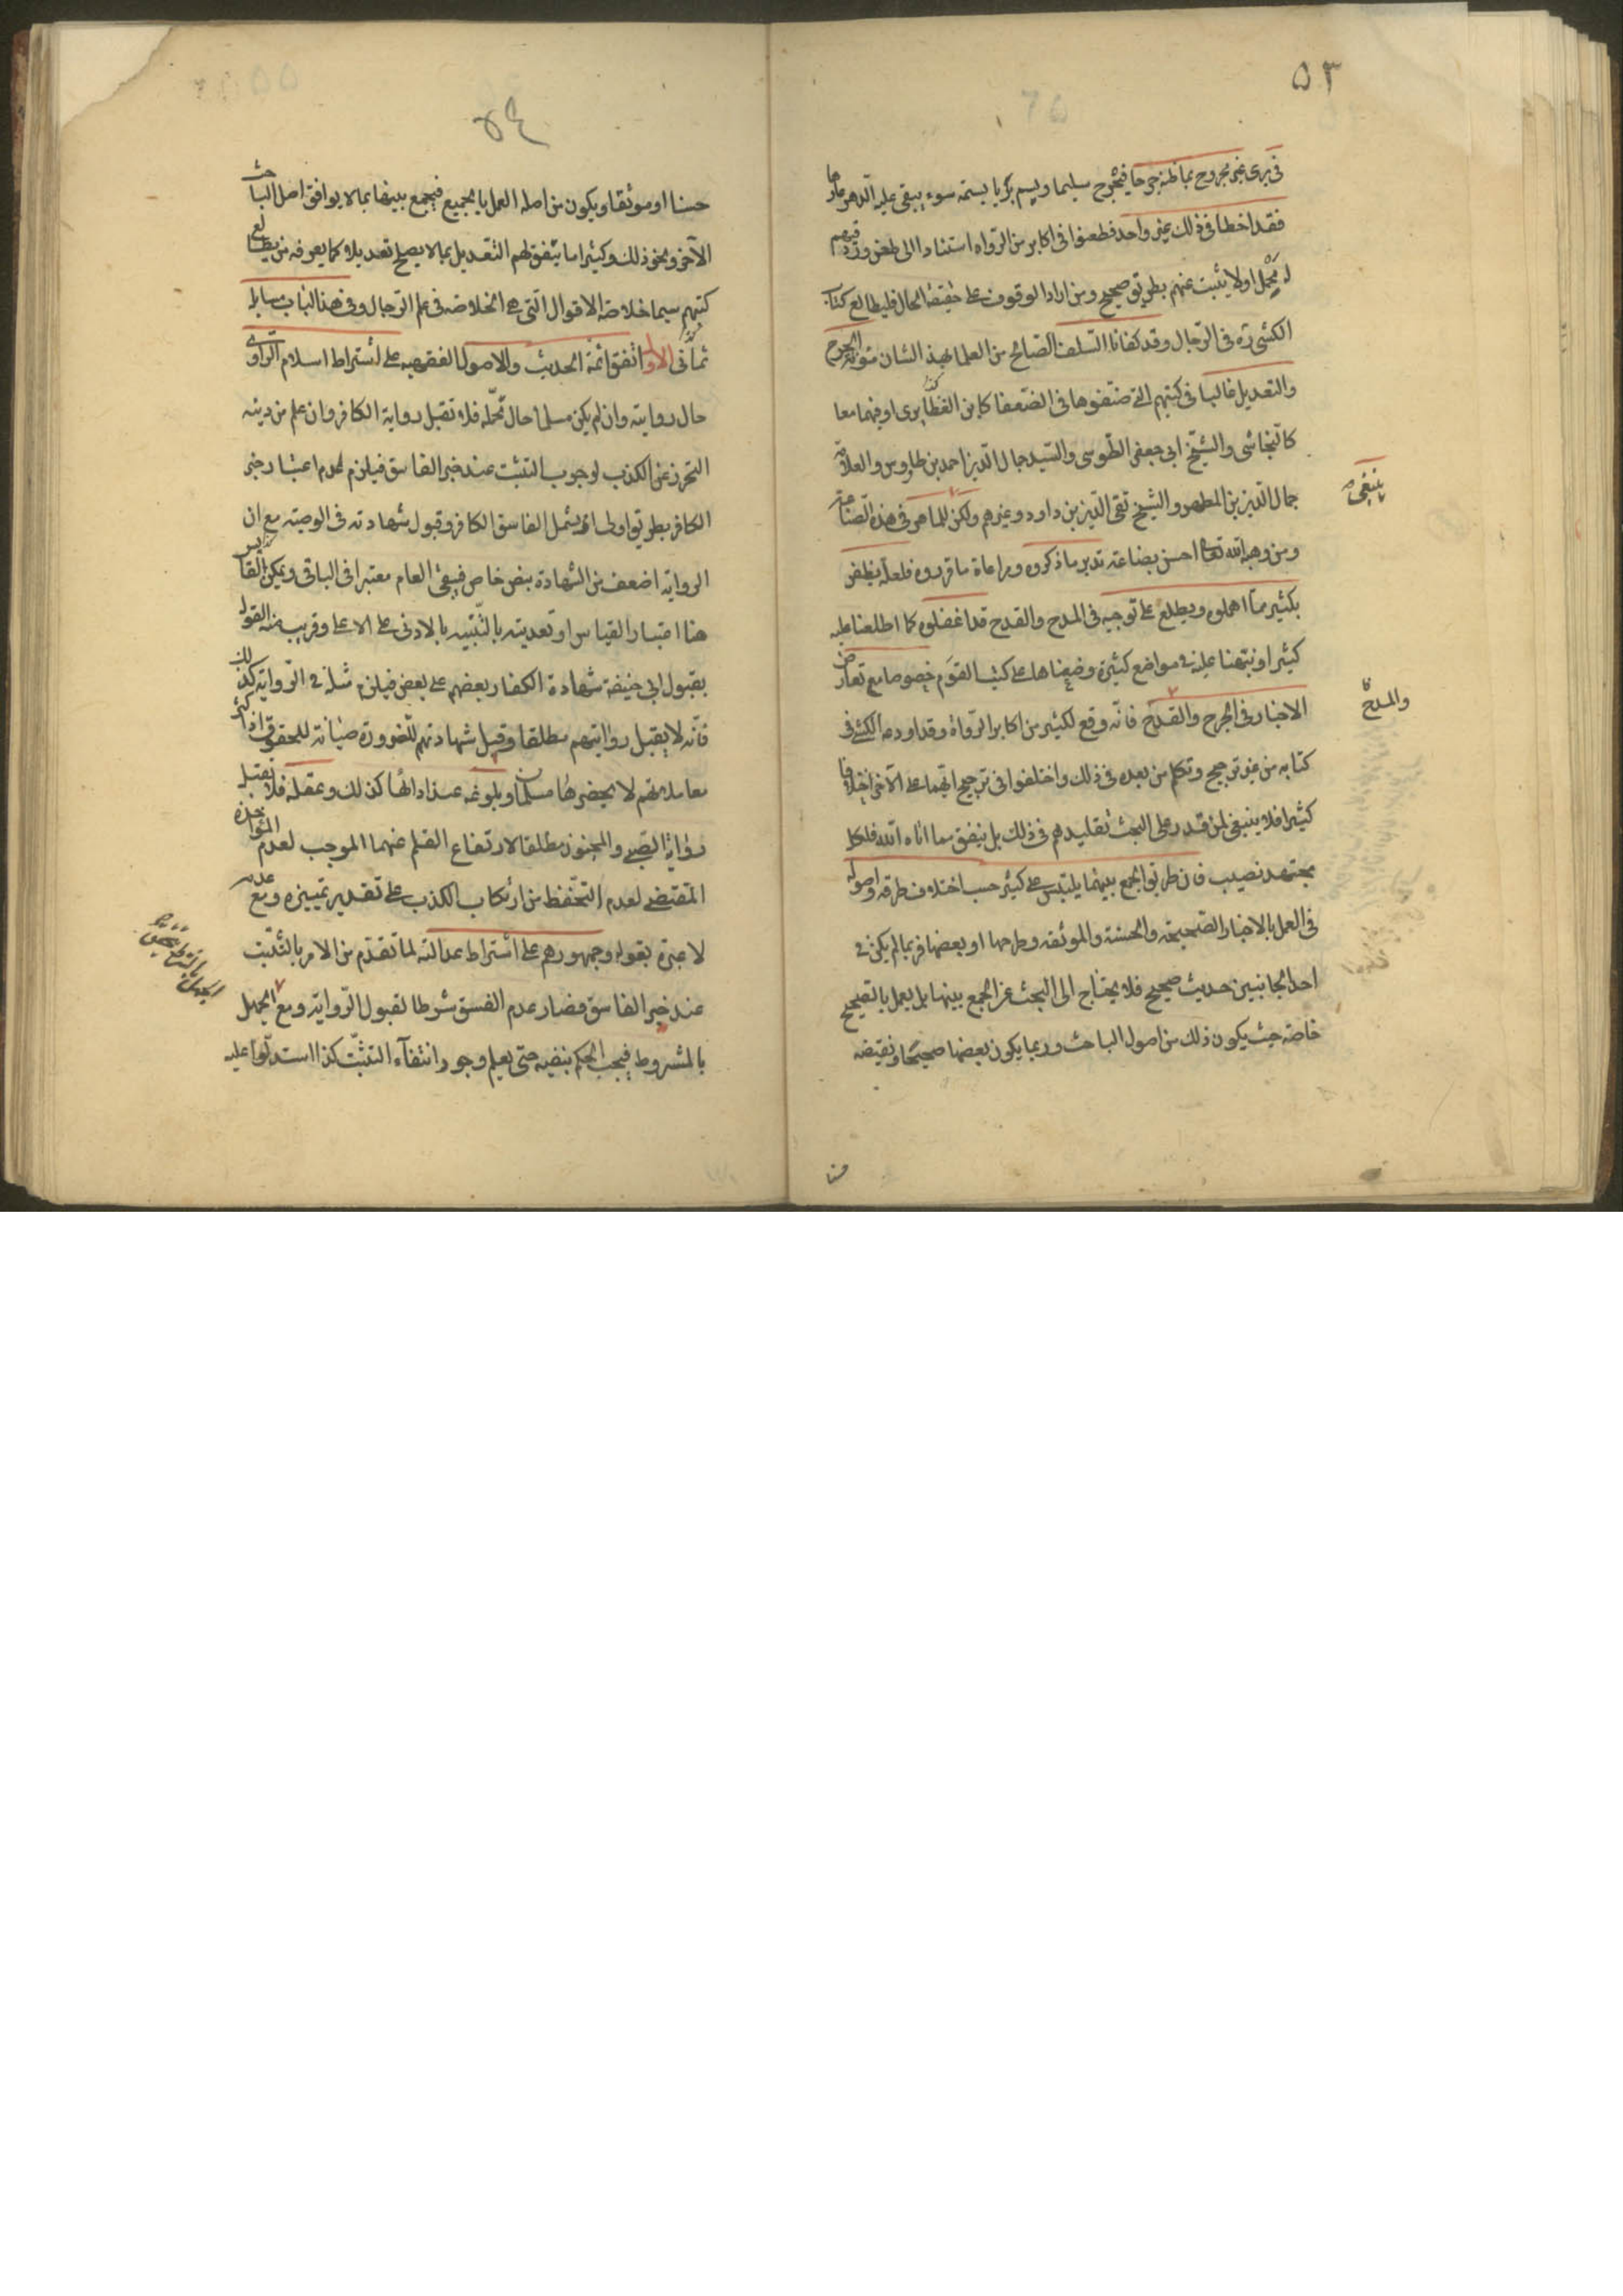 ٥٣
في جرح غير مجروح بما ظنه جرحا فيجرح سليما ويسم بريا بسمة سوء يبقى عليه الدهر عارها
فقد اخطا في ذلك غير واحد فطعنوا في اكابر من الرواه استنادا الى طعن ورد فيهم
له محمل اولا يثبت عنهم بطريق صحيح ومن اراد الوقوف على حقيقة الحال فليطالع كتاب
الكشي ره في الرجال وقد كفانا السلف الصالح من العلما بهذ الشان مؤنة الجرح
والتعديل غالبا في كتبهم التي صنفوها في الضعفا كابن الغضايرى او فيهما معا
كالنجاشى والشيخ ابى جعفر الطوسى والسيد جمال الدين احمد بن طاووس والعلامة
جمال الدين بن المطهر والشيخ تقى الدين بن داود وغيرهم ولكن للماهر في هذه الصناعة
ينبغى
ومن وهبه الله تعالى احسن بضاعة تدبر ماذكروه ومراعاة ما قرروه فلعله يظفر
بكثير مما اهملوه ويطلع على توجيه في المدح والقدح قد اغفلوه كما اطلعنا عليه
كثيرا ونبهنا عليه في مواضع كثيرة وضعناها على كتب القوم خصوصا مع تعارض
الاخبار في الجرح والقدح فانه وقع لكثير من اكابر الرواة وقد اودعه الكشي في
والمدح
كتابه من غير ترجيح وتكلم من بعده في ذلك واختلفوا في ترجيح ايهما على الآخر اختلافا
كثيرا فلا ينبغى لمن قدر على البحث تقليدهم في ذلك بل ينفق مما اتاه الله فلكل
مجتهد نصيب فان طريق الجمع بينهما يلتبس على كثير حسب اختلاف طرقه واصوله
في العمل بالاخبار الصحيحة والحسنة والموثقه وطرحها او بعضها فربما لم يكن في
احد الجانبين حديث صحيح فلا يحتاج الى البحث عن الجمع بينهما بل يعمل بالصحيح
خاصة حيث يكون ذلك من اصول الباحث وربما يكون بعضها صحيحا ونقيضه
حسنا
٥٤
حسنا او موثقا ويكون من اصله العمل بالجميع فيجمع بينهما بما لا يوافق اصل الباحث
الآخر ونحو ذلك وكثيرا ما يتفق لهم التعديل بما لا يصلح تعديلا كما يعرفه من يطالع
كتبهم سيما خلاصة الاقوال التي هي الخلاصة في علم الرجال وفي هذا الباب مسايل
ثمانى الاولى اتفق ائمة الحديث والاصول الفقهيه على اشتراط اسلام الراوى
حال روايته وان لم يكن مسلما حال تحمله فلا تقبل رواية الكافر وان علم من دينه
التحرز عن الكذب لوجوب التثبت عند خبر الفاسق فيلزم عدم اعتبار خبر
الكافر بطريق اولى اذ يشمل الفاسق الكافر وقبول شهادته في الوصيه مع ان
الرواية اضعف من الشهادة بنص خاص فيبقى العام معتبرا في الباقى ويمكن القايس
هنا اعتبار القياس او تعديته بالتنبيه بالادنى على الاعلى وقريب منه القول
بقبول ابى حنيفة شهادة الكفار بعضهم على بعض فيلزم مثله في الرواية كذلك
فانه لا يقبل روايتهم مطلقا وقبل شهادتهم للضرورة صيانة للحقوق اذ اكثر
معاملاتهم لا يحضرها مسلمان وبلوغه عند ادائها كذلك وعقله فلا يقبل
رواية الصبي والمجنون مطلقا لارتفاع القلم عنهما الموجب لعدم المؤاخذة
المقتضى لعدم التحفظ من ارتكاب الكذب على تقدير تمييزه ومع عدمه
لا عبرة بقوله وجمهورهم على اشتراط عدالته لما تقدم من الامر بالتثبت
عند خبر الفاسق فصار عدم الفسق شرطا لقبول الرواية ومع الجهل
بالمشروط فيجب الحكم بنفيه حتى يعلم وجود انتفاء التثبت كذا استدلوا عليه